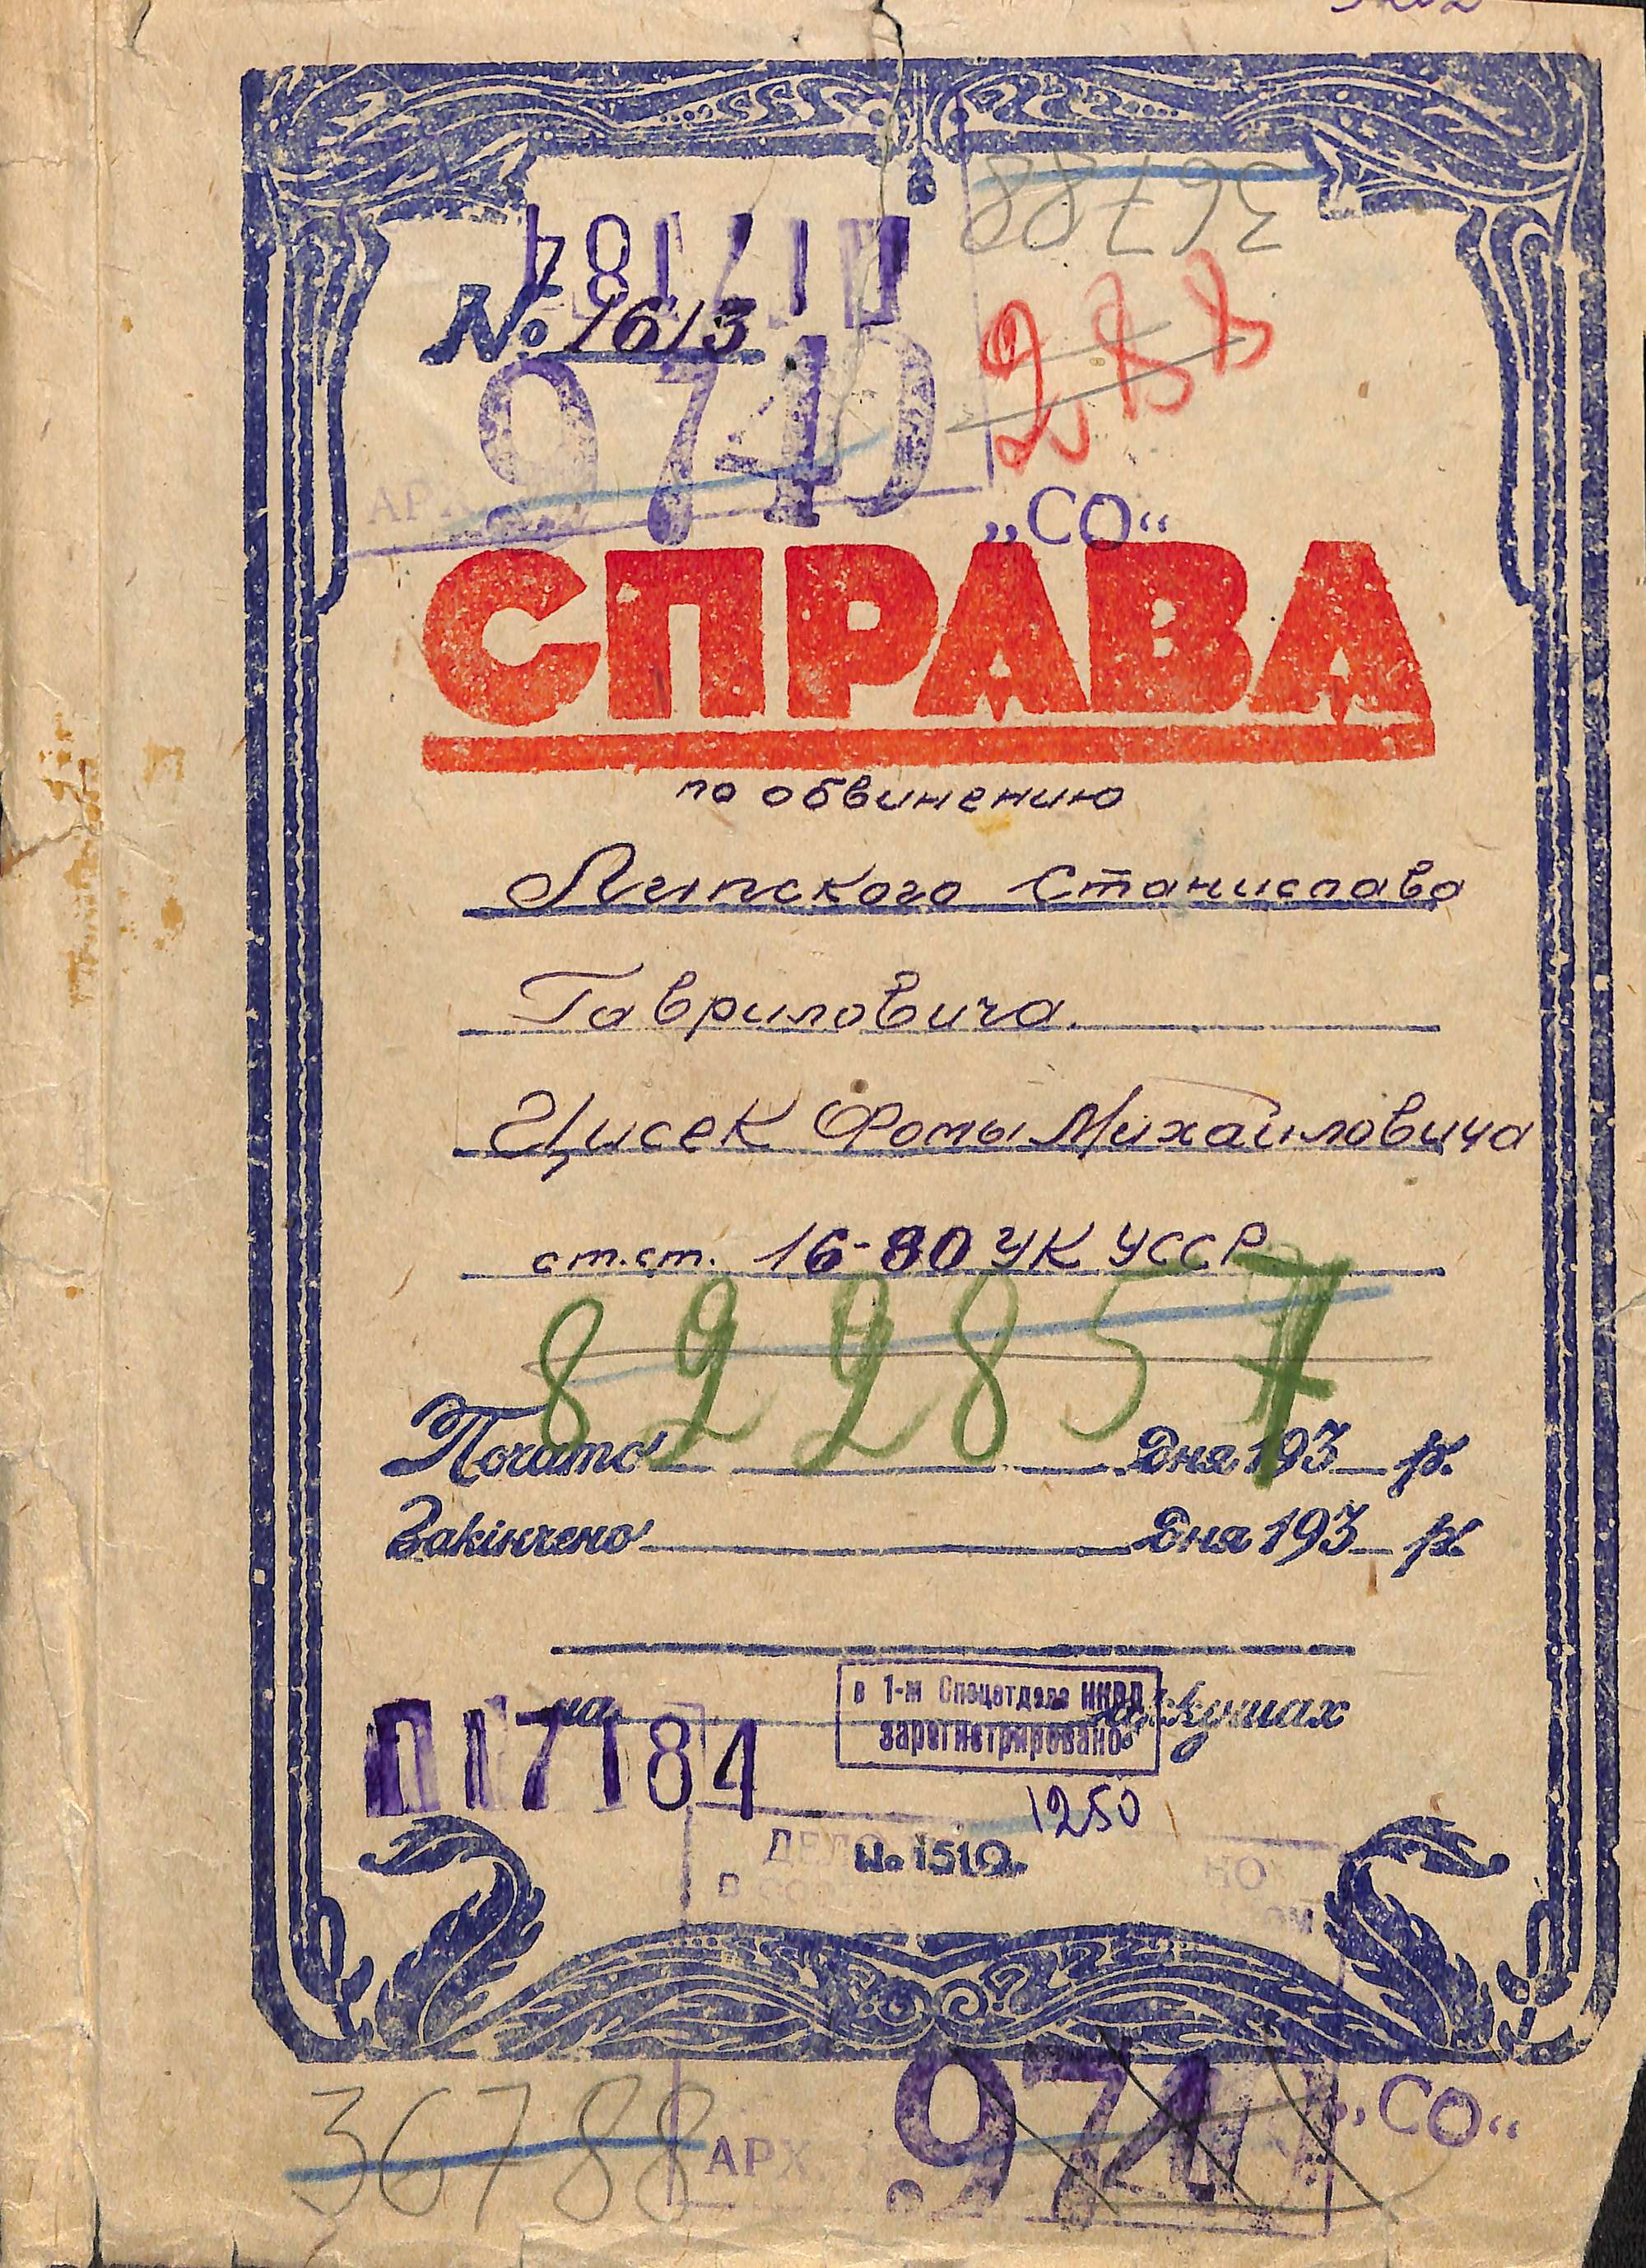 П17184
36788
№ 1613
288
9740
АРХ
„СО“
СПРАВА
по обвинению
Липского Станислава
Гавриловича.
Цисек Фомы Михайловича
ст.ст. 16-80 УК УССР
822857
Почато Дня 193 р.
Закінчено Дня 193 р.
на аркушах
в 1-м Спецотделе НКВД
зарегистрировано
П17184
1250
ДЕЛО
№ 1510
НО
В СО
ОМ
36788
АРХ.
974
„СО“